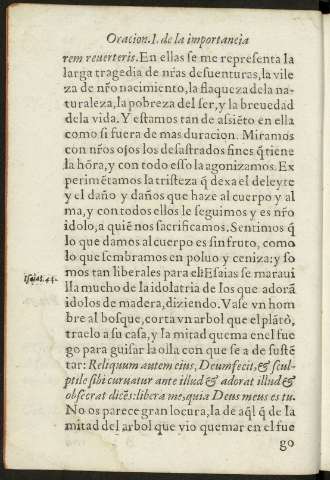 Oracion. I. de la importancia
rem reuerteris. En ellas se me representa la
larga tragedia de nr̃as desuenturas, la vile
za de nr̃o nacimiento, la flaqueza de la na-
turaleza, la pobreza del ser, y la breuedad
de la vida. Y estamos tan de assiẽto en ella
como si fuera de mas duracion. Miramos
con nr̃os ojos los desastrados fines q̃ tiene
la hõra, y con todo esso la agonizamos. Ex
perimẽtamos la tristeza q̃ dexa el deleyte
y el daño y daños que haze al cuerpo y al
ma, y con todos ellos le seguimos y es nr̃o
idolo, a quiẽ nos sacrificamos. Sentimos q̃
lo que damos al cuerpo es sin fruto, como
lo que sembramos en poluo y ceniza: y so
mos tan liberales para el: Esaias se maraui
Isaiae. 44.
lla mucho de la idolatria de los que adorã
idolos de madera, diziendo. Vase vn hom
bre al bosque, corta vn arbol que el plãtò,
traelo a su casa, y la mitad quema en el fue
go para guisar la olla con que se a de sustẽ
tar: Reliquum autem eius, Deum fecit, & scul-
ptile sibi curuatur ante illud & adorat illud &
obsecrat dicẽs: libera me, quia Deus meus es tu.
No os parece gran locura, la de aq̃l q̃ de la
mitad del arbol que vio quemar en el fue
go